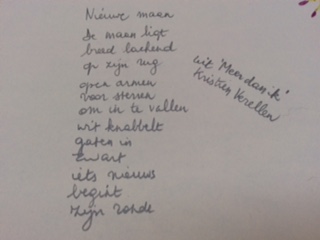 Nieuwe maan
De maan ligt
breed lachend
op zijn rug
open armen
voor sterren
om in te vallen
wit knabbelt
gaten in
zwart
iets nieuws
begint
zijn ronde
uit 'Meer dan ik'
Kristien